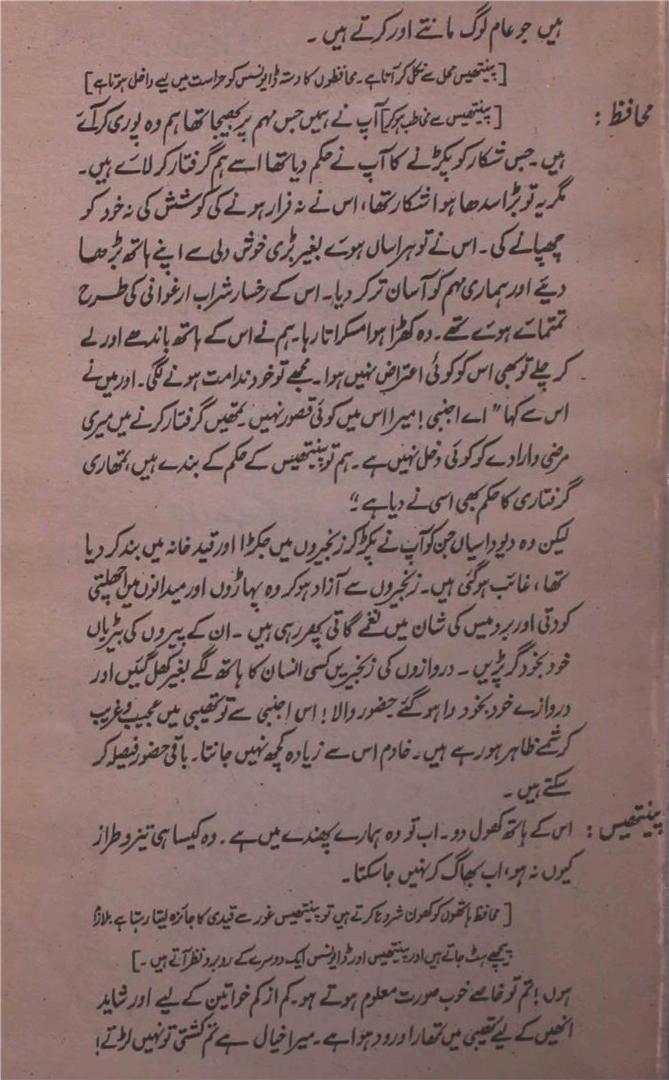 ہیں جو عام لوگ مانتے اور کرتے ہیں ۔
[پنیتھیس محل سے نکل کر آتا ہے۔ محافظوں کا دستہ ڈایونسس کو حراست میں لیے داخل ہوتا ہے]
محافظ : [پنیتھیس سے مخاطب ہو کر] آپ نے ہمیں جس مہم پر بھیجا تھا ہم وہ پوری کر آئے
ہیں۔ جس شکار کو پکڑنے کا آپ نے حکم دیا تھا اسے ہم گرفتار کر لائے ہیں۔
مگر یہ تو بڑا سدھا ہوا شکار تھا، اس نے نہ فرار ہونے کی کوشش کی نہ خود کو
چھپانے کی۔ اس نے تو ہراساں ہوئے بغیر بڑی خوش دلی سے اپنے ہاتھ بڑھا
دیئے اور ہماری مہم کو آسان تر کر دیا۔ اس کے رخسار شراب ارغوانی کی طرح
تمتمائے ہوئے تھے۔ وہ کھڑا ہوا مسکراتا رہا۔ ہم نے اس کے ہاتھ باندھے اور لے
کر چلے تو بھی اس کو کوئی اعتراض نہیں ہوا۔ مجھے تو خود ندامت ہونے لگی۔ اور میں نے
اس سے کہا ”اے اجنبی! میرا اس میں کوئی قصور نہیں۔ تمھیں گرفتار کرنے میں میری
مرضی و ارادے کو کوئی دخل نہیں ہے۔ ہم تو پنیتھیس کے حکم کے بندے ہیں، تمھاری
گرفتاری کا حکم بھی اسی نے دیا ہے۔“
لیکن وہ دیوداسیاں جن کو آپ نے پکڑ کر زنجیروں میں جکڑا اور قید خانہ میں بند کر دیا
تھا، غائب ہو گئی ہیں۔ زنجیروں سے آزاد ہو کر وہ پہاڑوں اور میدانوں میں اچھلتی
کودتی اور برومیس کی شان میں نغمے گاتی پھر رہی ہیں ۔ ان کے پیروں کی بیڑیاں
خود بخود گر پڑیں ۔ دروازوں کی زنجیریں کسی انسان کا ہاتھ لگے بغیر کھل گئیں اور
دروازے خود بخود وا ہو گئے۔ حضور والا! اس اجنبی سے تو تھیبی میں عجیب و غریب
کرشمے ظاہر ہو رہے ہیں۔ خادم اس سے زیادہ کچھ نہیں جانتا۔ باقی حضور فیصلہ کر
سکتے ہیں ۔
پنیتھیس : اس کے ہاتھ کھول دو۔ اب تو وہ ہمارے پھندے میں ہے۔ وہ کیسا ہی تیز و طراز
کیوں نہ ہو، اب بھاگ کر نہیں جا سکتا۔
[محافظ ہاتھوں کو کھولنا شروع کرتے ہیں تو پنیتھیس غور سے قیدی کا جائزہ لیتا رہتا ہے
پیچھے ہٹ جاتے ہیں اور پنیتھیس اور ڈایونسس ایک دوسرے کے روبرو نظر آتے ہیں ۔]
ہوں! تم تو خاصے خوب صورت معلوم ہوتے ہو۔ کم از کم خواتین کے لیے اور شاید
انھیں کے لیے تھیبی میں تمھارا ورود ہوا ہے۔ میرا خیال ہے تم کشتی تو نہیں لڑتے!